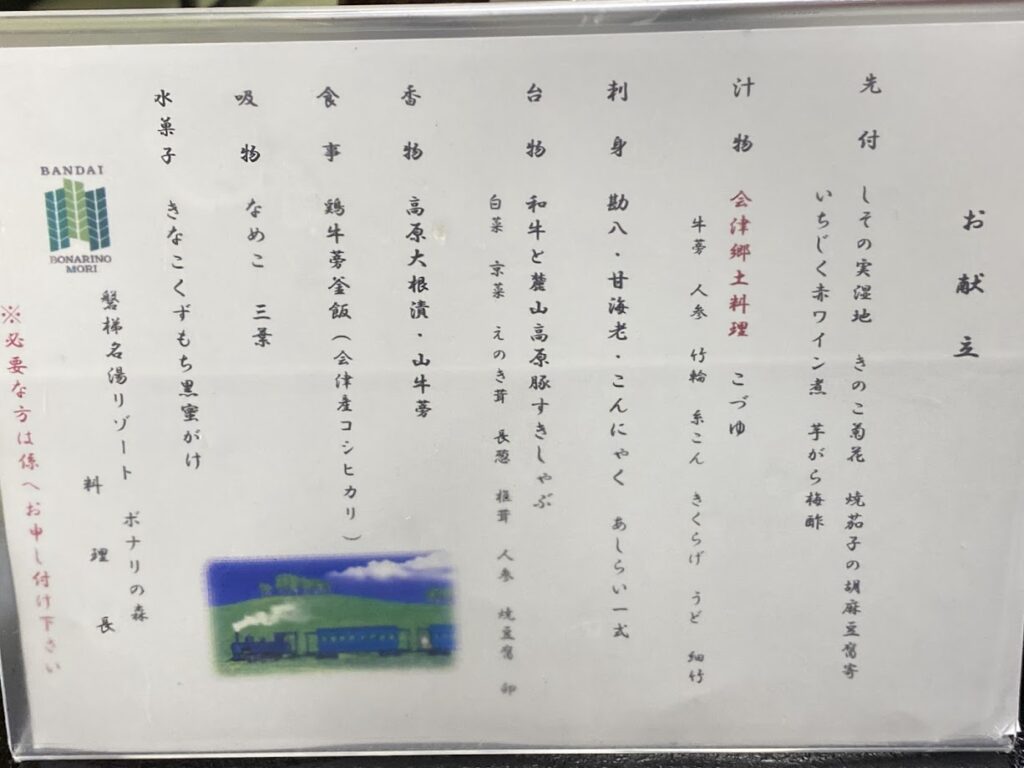 お献立
先付 しその実湿地 きのこ菊花 焼茄子の胡麻豆腐寄
いちじく赤ワイン煮 芋がら梅酢
汁物 会津郷土料理 こづゆ
牛蒡 人参 竹輪 糸こん きくらげ うど 細竹
刺身 勘八・甘海老・こんにゃく あしらい一式
台物 和牛と麓山高原豚すきしゃぶ
白菜 京菜 えのき茸 長葱 椎茸 人参 焼豆腐 卵
香物 高原大根漬・山牛蒡
食事 鶏牛蒡釜飯(会津産コシヒカリ)
吸物 なめこ 三葉
水菓子 きなこくずもち黒蜜がけ
磐梯名湯リゾート ボナリの森
料理長
※必要な方は係へお申し付け下さい
BANDAI
BONARINO
MORI